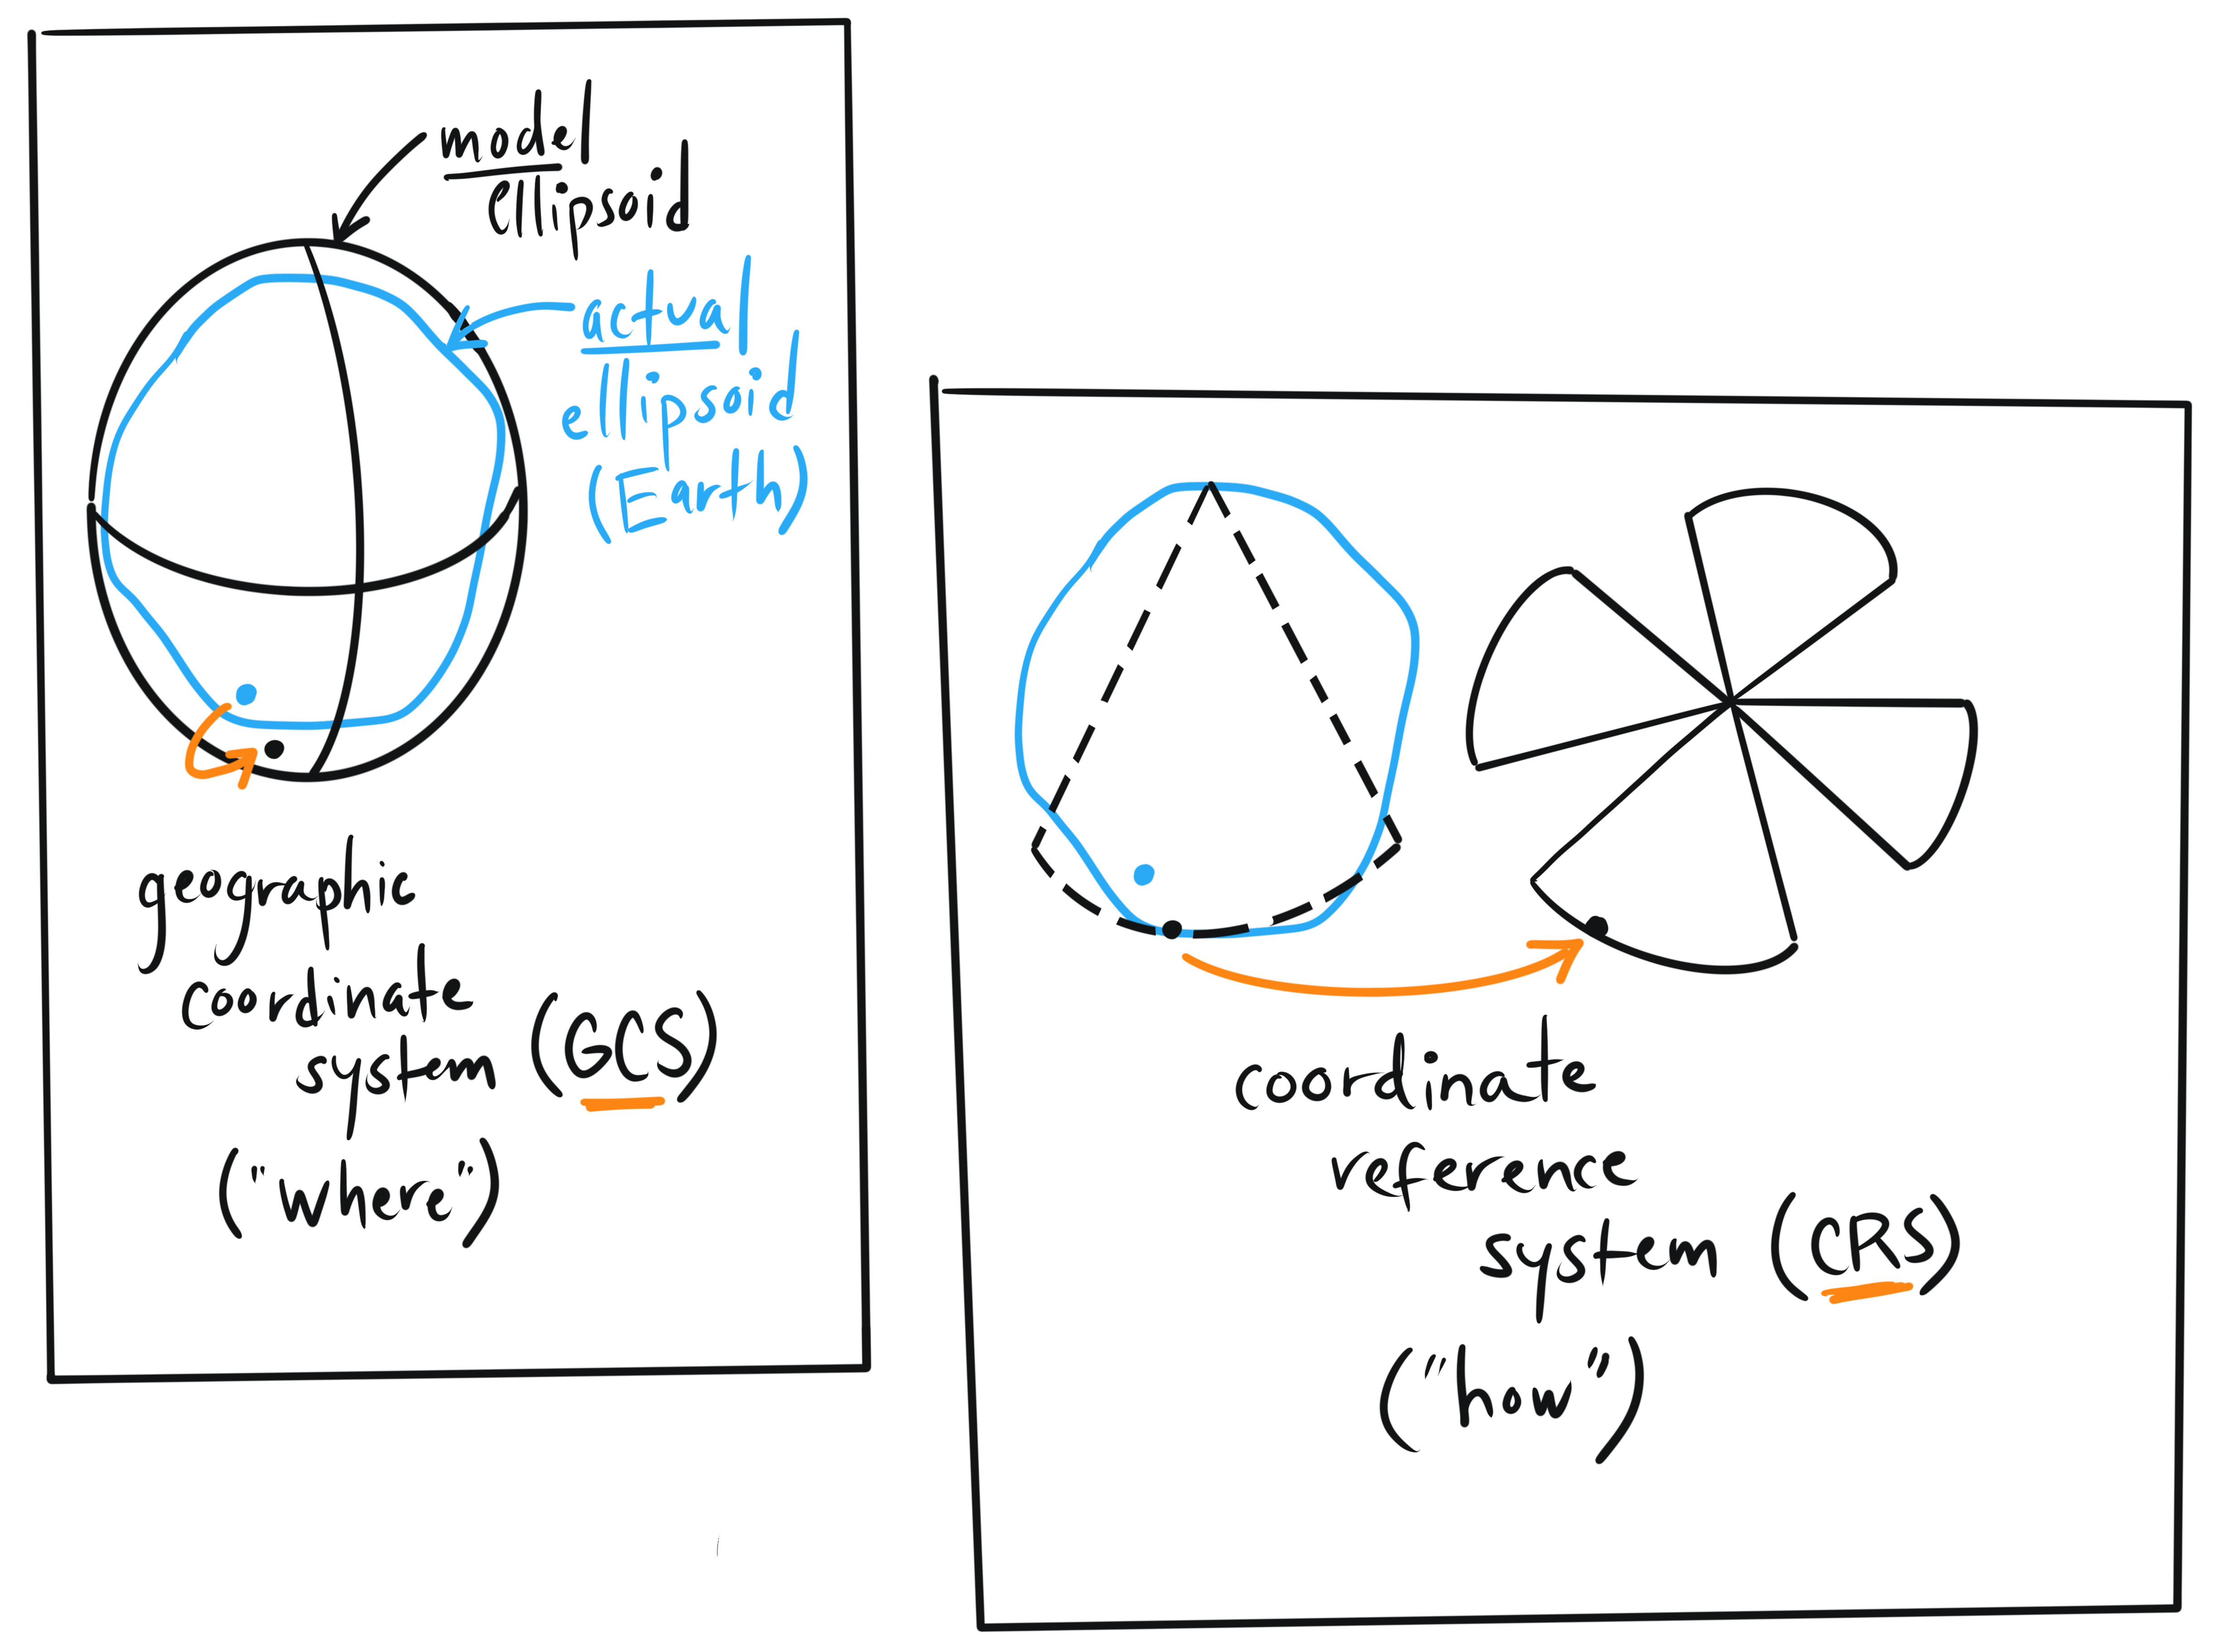 model
ellipsoid
actual
ellipsoid
(Earth)
geographic
coordinate
system (GCS)
("where")
coordinate
reference
system (CRS)
("how")